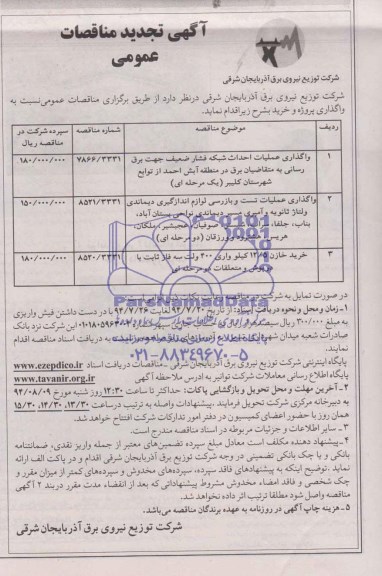 آگهی تجدید مناقصات
عمومی
شرکت توزیع نیروی برق آذربایجان شرقی
شرکت توزیع نیروی برق آذربایجان شرقی درنظر دارد از طریق برگزاری مناقصات عمومی نسبت به
واگذاری پروژه و خرید بشرح زیر اقدام نماید.
ردیف موضوع مناقصه شماره مناقصه سپرده شرکت در مناقصه ریال
۱ واگذاری عملیات احداث شبکه فشار ضعیف جهت برق رسانی به متقاضیان برق در منطقه آبش احمد از توابع شهرستان کلیبر (یک مرحله ای) ۷۸۶۶/۳۳۳۱ ۱۸۰/۰۰۰/۰۰۰
۲ واگذاری عملیات تست و بازرسی لوازم اندازگیری دیماندی ولتاژ ثانویه و دیماندی نواحی بستان آباد، بناب، جلفا، صوفیان، عجبشیر، ملکان، هریس، و ورزقان (دو مرحله ای) ۸۵۲۱/۳۳۳۱ ۱۵۰/۰۰۰/۰۰۰
۳ خرید خازن ۱۲/۵ کیلو واری ۴۰۰ ولت سه فاز ثابت با و متعلقات دو مرحله ای ۸۵۲۰/۳۳۳۱ ۱۸۰/۰۰۰/۰۰۰
در صورت تمایل به شرکت
۱- زمان و محل و نحوه دریافت اسناد: از تاریخ ۹۴/۷/۲۰ لغایت ۹۴/۷/۲۶ با در دست داشتن فیش واریزی
به مبلغ ۳۰۰/۰۰۰ ریال این شرکت نزد بانک
صادرات شعبه میدان به دریافت اسناد مناقصه اقدام
نمایند.
پایگاه اینترنتی شرکت توزیع نیروی برق آذربایجان شرقی - مناقصات دریافت اسناد www.ezepdico.ir
پایگاه اطلاع رسانی معاملات شرکت توانیر به ادرس ملاحظه آگهی www.tavanir.org.ir
۲- آخرین مهلت و محل تحویل و بازگشایی پاکات: حداکثر تا ساعت ۱۲:۳۰ روز شنبه مورخ ۹۴/۰۸/۰۹
به دبیرخانه مرکزی شرکت تحویل فرمایند. پیشنهادات واصله به ترتیب درساعت ۱۳/۳۰، ۱۴/۳۰، ۱۵/۳۰
همان روز با حضور اعضای کمیسیون در دفتر امور تدارکات شرکت افتتاح خواهد شد.
۳- سایر اطلاعات و جزئیات مربوطه در اسناد مناقصه مندرج است.
۴- پیشنهاد دهنده مکلف است معادل مبلغ سپرده تضمین‌های معتبر از جمله واریز نقدی، ضمانتنامه
بانکی و یا چک بانکی تضمینی در وجه شرکت توزیع برق آذربایجان شرقی اقدام و در پاکت الف ارائه
نماید. توضیح اینکه به پیشنهادهای فاقد سپرده، سپرده‌های مخدوش و سپرده‌های کمتر از میزان مقرر و
چک شخصی و فاقد امضاء مخدوش مشروط پیشنهاداتی که بعد از انقضاء مدت مقرر دربند ۲ آگهی
مناقصه واصل شود مطلقا ترتیب اثر داده نخواهد شد.
۵- هزینه چاپ آگهی در روزنامه به عهده برندگان مناقصه می‌باشد.
شرکت توزیع نیروی برق آذربایجان شرقی
ParsNamadData
۰۲۱-۸۸۳۴۹۶۷۰-۵